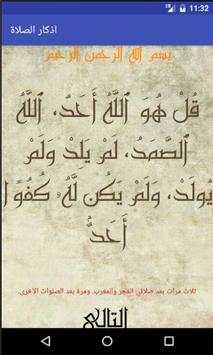 11:32
اذكار الصلاة
بسم الله الرحمن الرحيم
قُلْ هُوَ ٱللَّهُ أَحَدٌ، ٱللَّهُ
ٱلصَّمَدُ، لَمْ يَلِدْ وَلَمْ
يُولَدْ، وَلَمْ يَكُن لَّهُ كُفُوًا
أَحَدٌ
ثلاث مرات بعد صلاتي الفجر والمغرب، ومرة بعد الصلوات الأخرى.
التالي